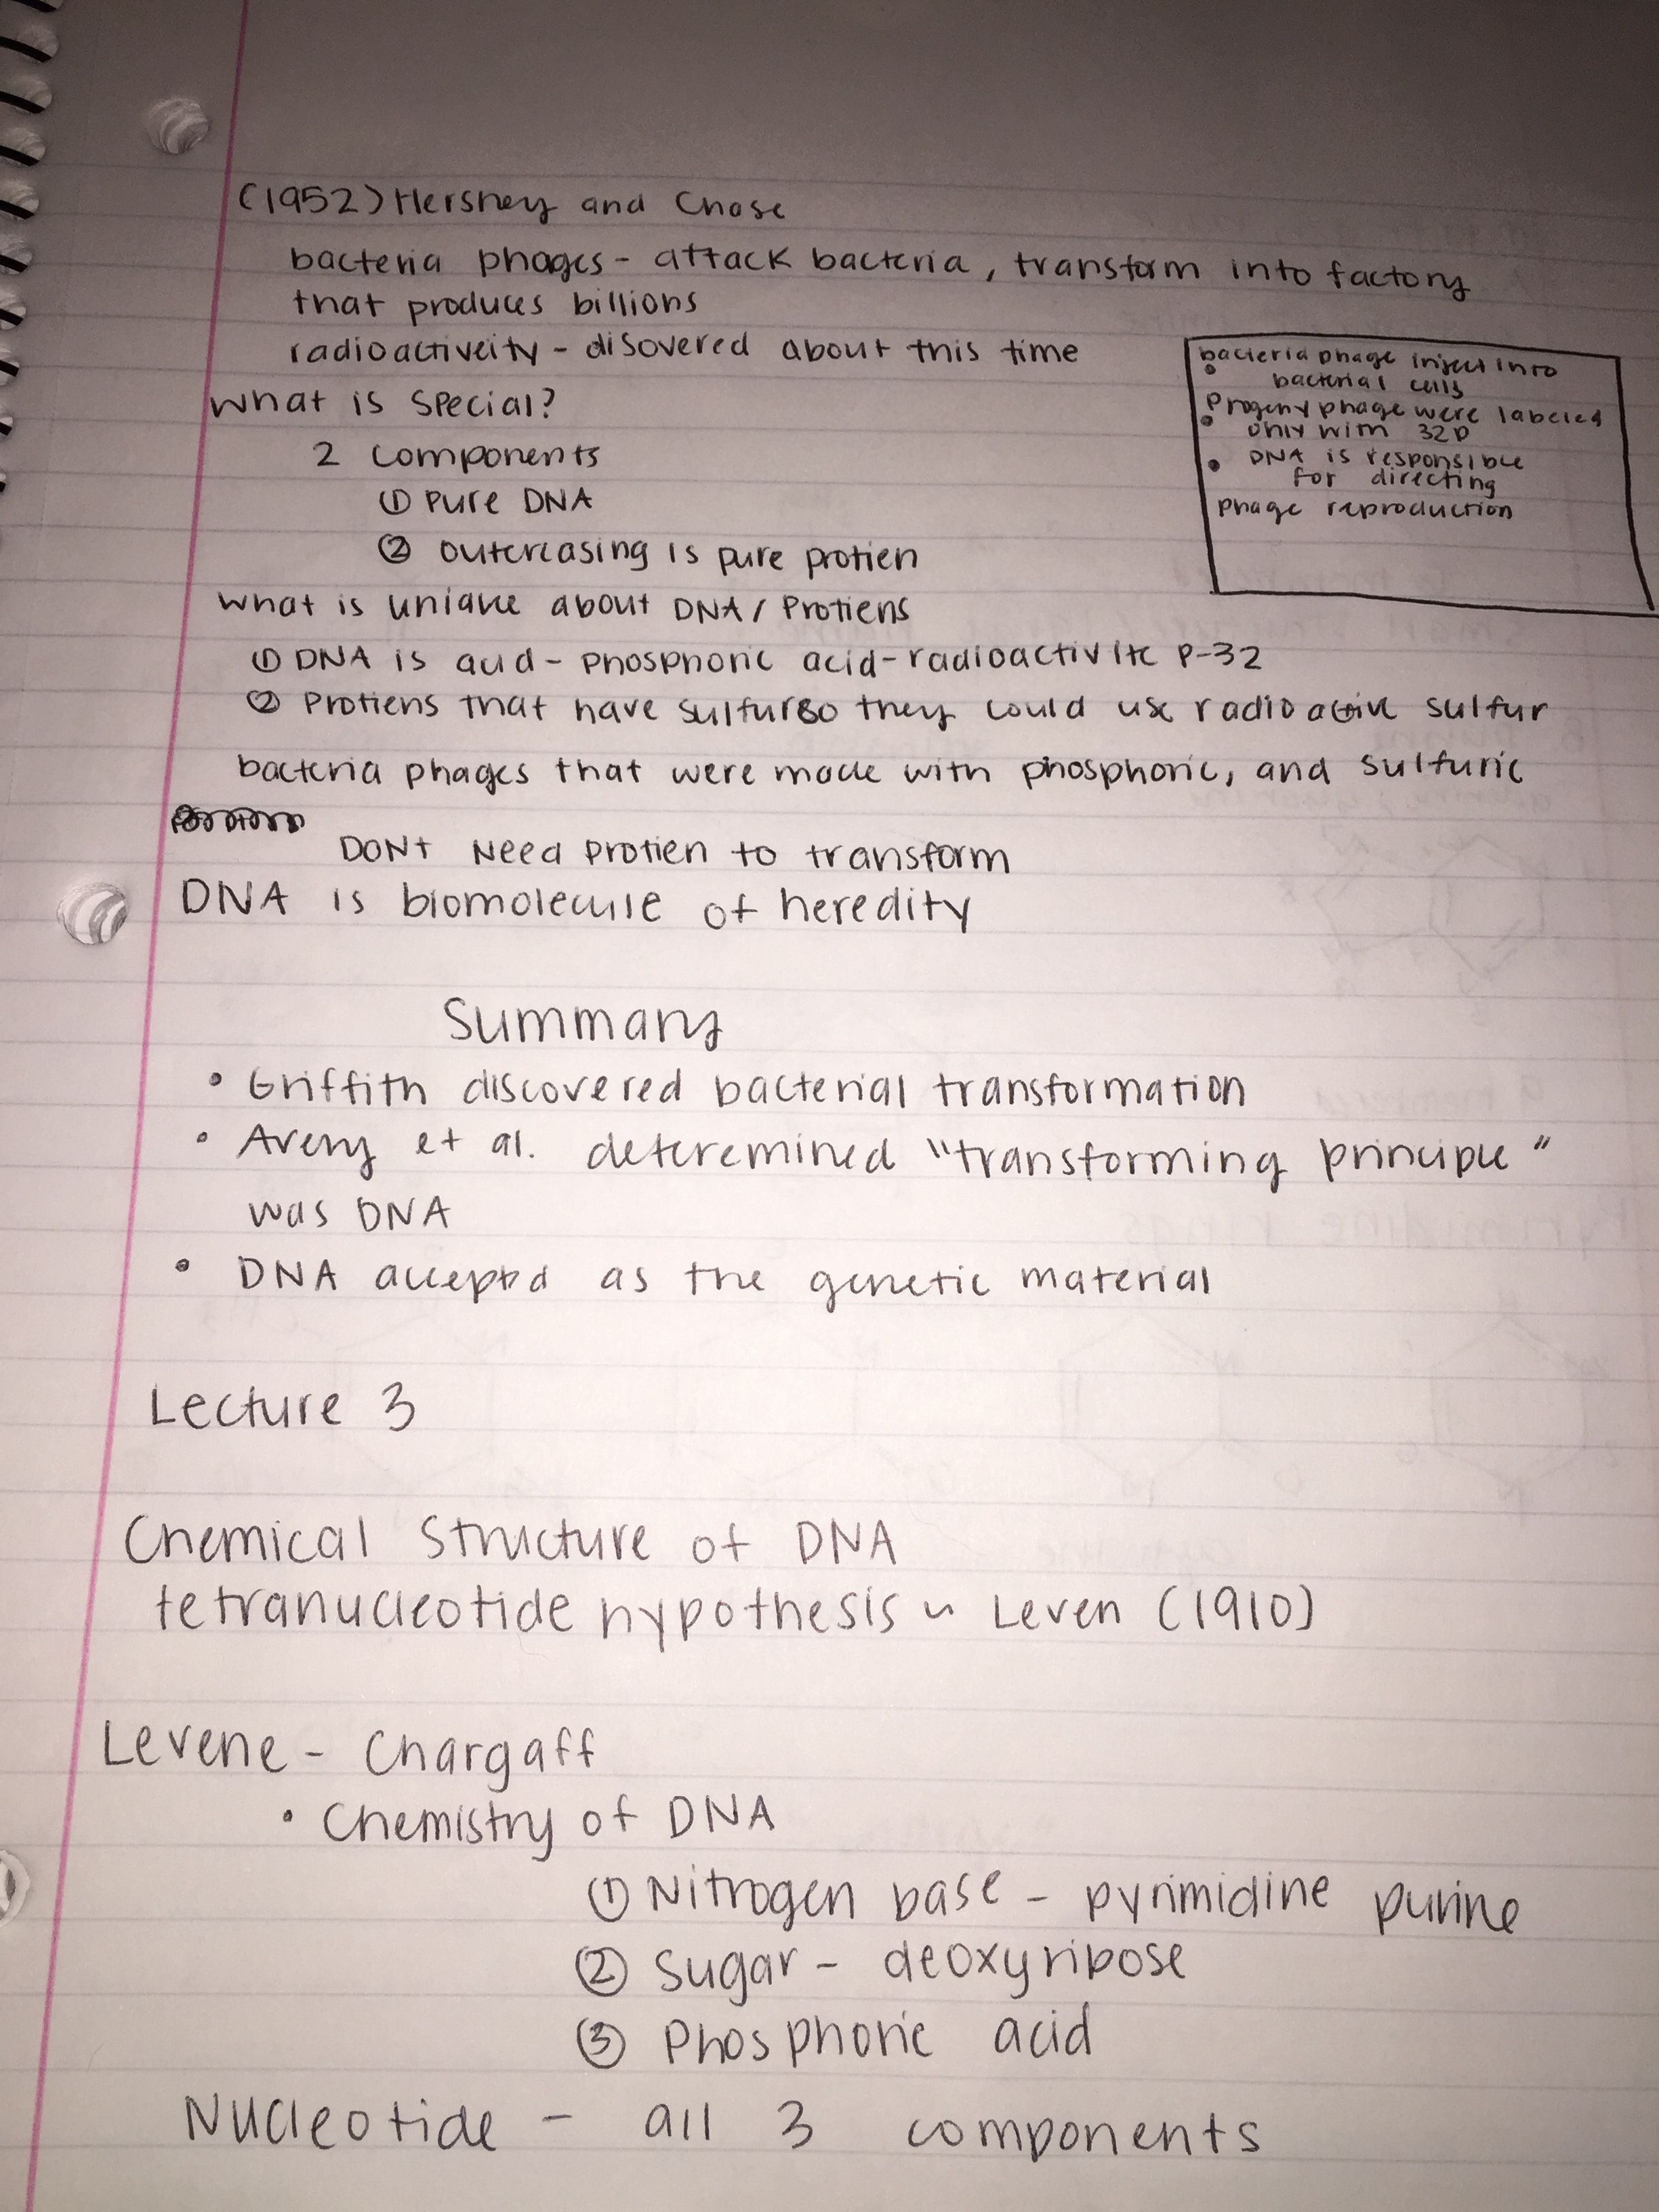 (1952) Hershey and Chase
bacteria phages - attack bacteria, transform into factory
that produces billions
radioactiveity - disovered about this time
What is special?
2 components
① Pure DNA
② outercasing is pure protien
bacteria phage inject into
bacterial cells
Progeny phage were labeled
only with 32P
DNA is responsible
for directing
phage reproduction
What is unique about DNA/Protiens
① DNA is acid - phosphoric acid - radioactivite P-32
② Protiens that have sulfur so they could use radioactive sulfur
bacteria phages that were made with phosphoric, and sulfuric
DONt Need protien to transform
DNA is biomolecule of heredity
Summary
• Griffith discovered bacterial transformation
• Avery et al. deteremined "transforming principle"
was DNA
• DNA accepted as the genetic material
Lecture 3
Chemical Structure of DNA
tetranucleotide hypothesis ~ Leven (1910)
Levene - Chargaff
• Chemistry of DNA
① Nitrogen base - pyrimidine purine
② Sugar - deoxyribose
③ Phosphoric acid
Nucleotide - all 3 components